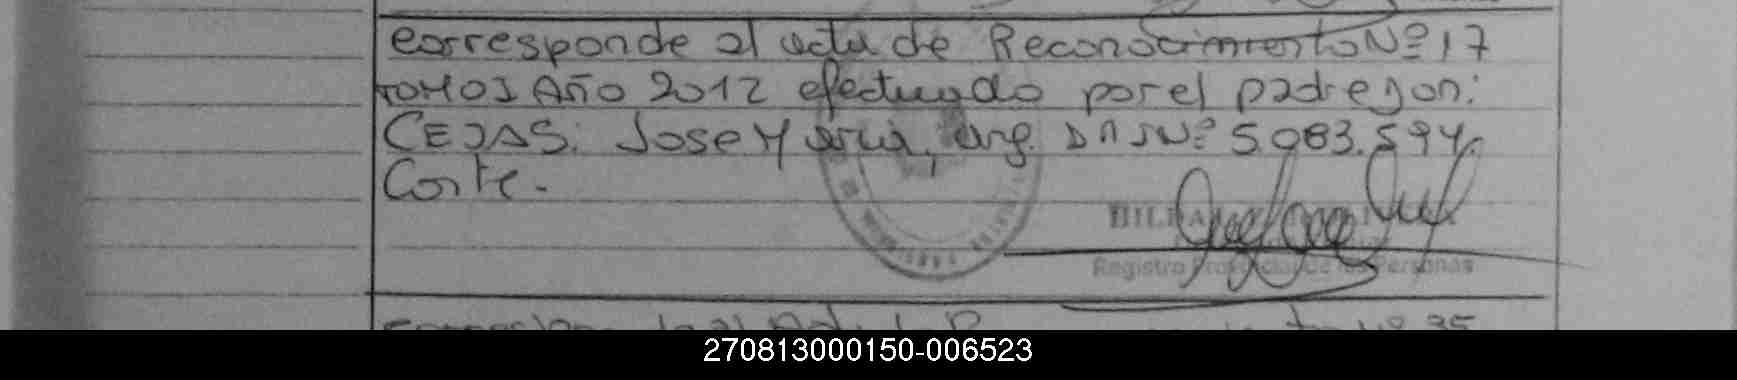 corresponde al acta de Reconocimiento Nº 17
TOMO I Año 2012 efectuado por el padre don:
CEJAS: Jose Maria, arg. DNI Nº 5.083.594.
Conte.-
Registro Provincial de las Personas
270813000150-006523